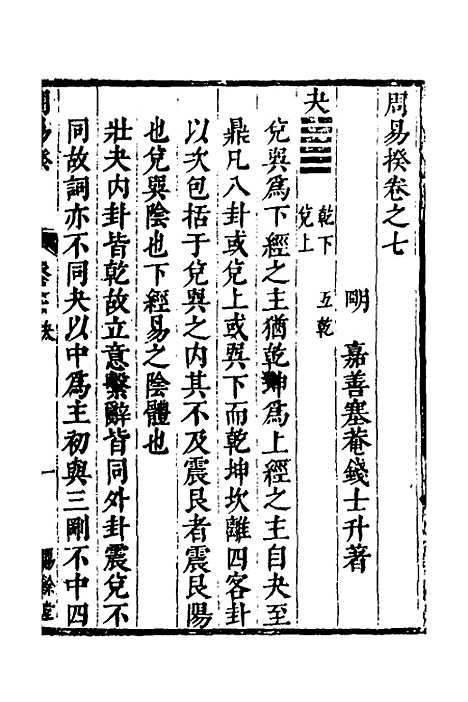 周易揆卷之七
明　嘉善塞菴錢士升著
夬　乾下　互乾
兌上
兌巽爲下經之主猶乾坤爲上經之主自夬至
鼎凡八卦或兌上或巽下而乾坤坎離四客卦
以次包括于兌巽之內其不及震艮者震艮陽
也兌巽陰也下經易之陰體也
壯夬內卦皆乾故立意繫辭皆同外卦震兌不
同故詞亦不同夬以中爲主初與三剛不中四
周易揆
卷之
夬
一
賜餘堂